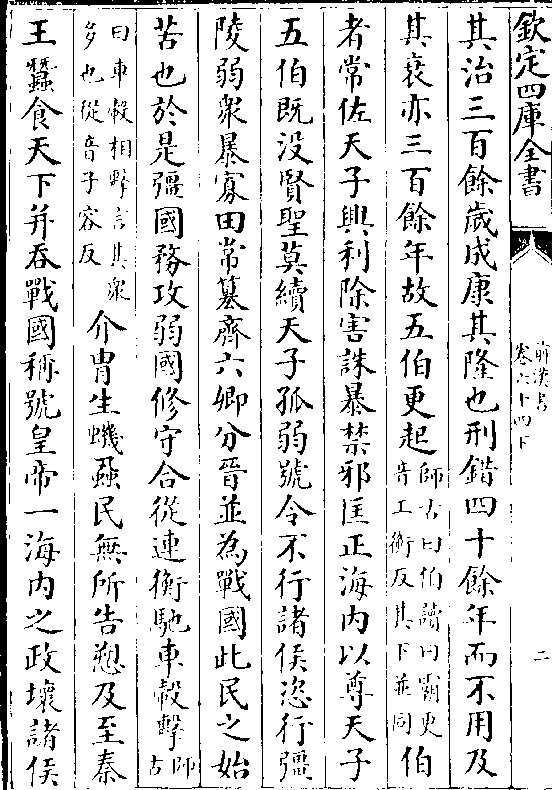 欽定四庫全書
前漢書
卷六十四下
二
其治三百餘歲成康其隆也刑錯四十餘年而不用及
其衰亦三百餘年故五伯更起師古曰伯讀曰霸更音工衡反其下並同伯
者常佐天子興利除害誅暴禁邪匡正海内以尊天子
五伯既没賢聖莫續天子孤弱號令不行諸侯恣行彊
陵弱衆暴寡田常簒齊六卿分晉並為戰國此民之始
苦也於是彊國務攻弱國修守合從連衡馳車轂擊師古
曰車轂相擊言其衆多也從音子容反介胄生蟣蝨民無所告愬及至秦
王蠶食天下并吞戰國稱號皇帝一海内之政壞諸侯